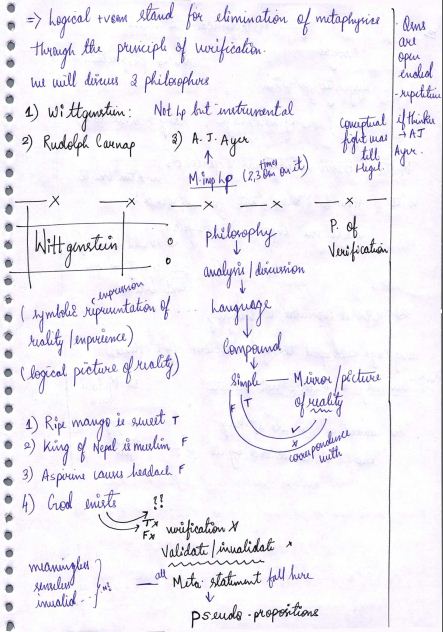 => Logical +vism stand for elimination of metaphysics
through the principle of verification.
we will discuss 3 philosophers
1) Wittgenstein: Not Lp but instrumental
2) Rudolph Carnap 3) A. J. Ayer
M. imp Lp (2,3 times Qns on it)
Conceptual
fight was
till
Hegel.
Qns
are
open
ended
- repetitive
if thinker
→ AJ
Ayer.
Wittgenstein :
(symbolic representation of
expression
reality / experience)
(logical picture of reality)
philosophy
analysis / discussion
Language
Compound
Simple — Mirror / picture
of reality
F T
✓
x
correspondence
with
P. of
Verification
1) Ripe mango is sweet T
2) King of Nepal is muslim F
3) Aspirine causes headach F
4) God exists ??
T x
F x
verification X
Validate / invalidate x
meaningless
senseless
invalid ..
— all Meta. statement fall here
Pseudo - propositions